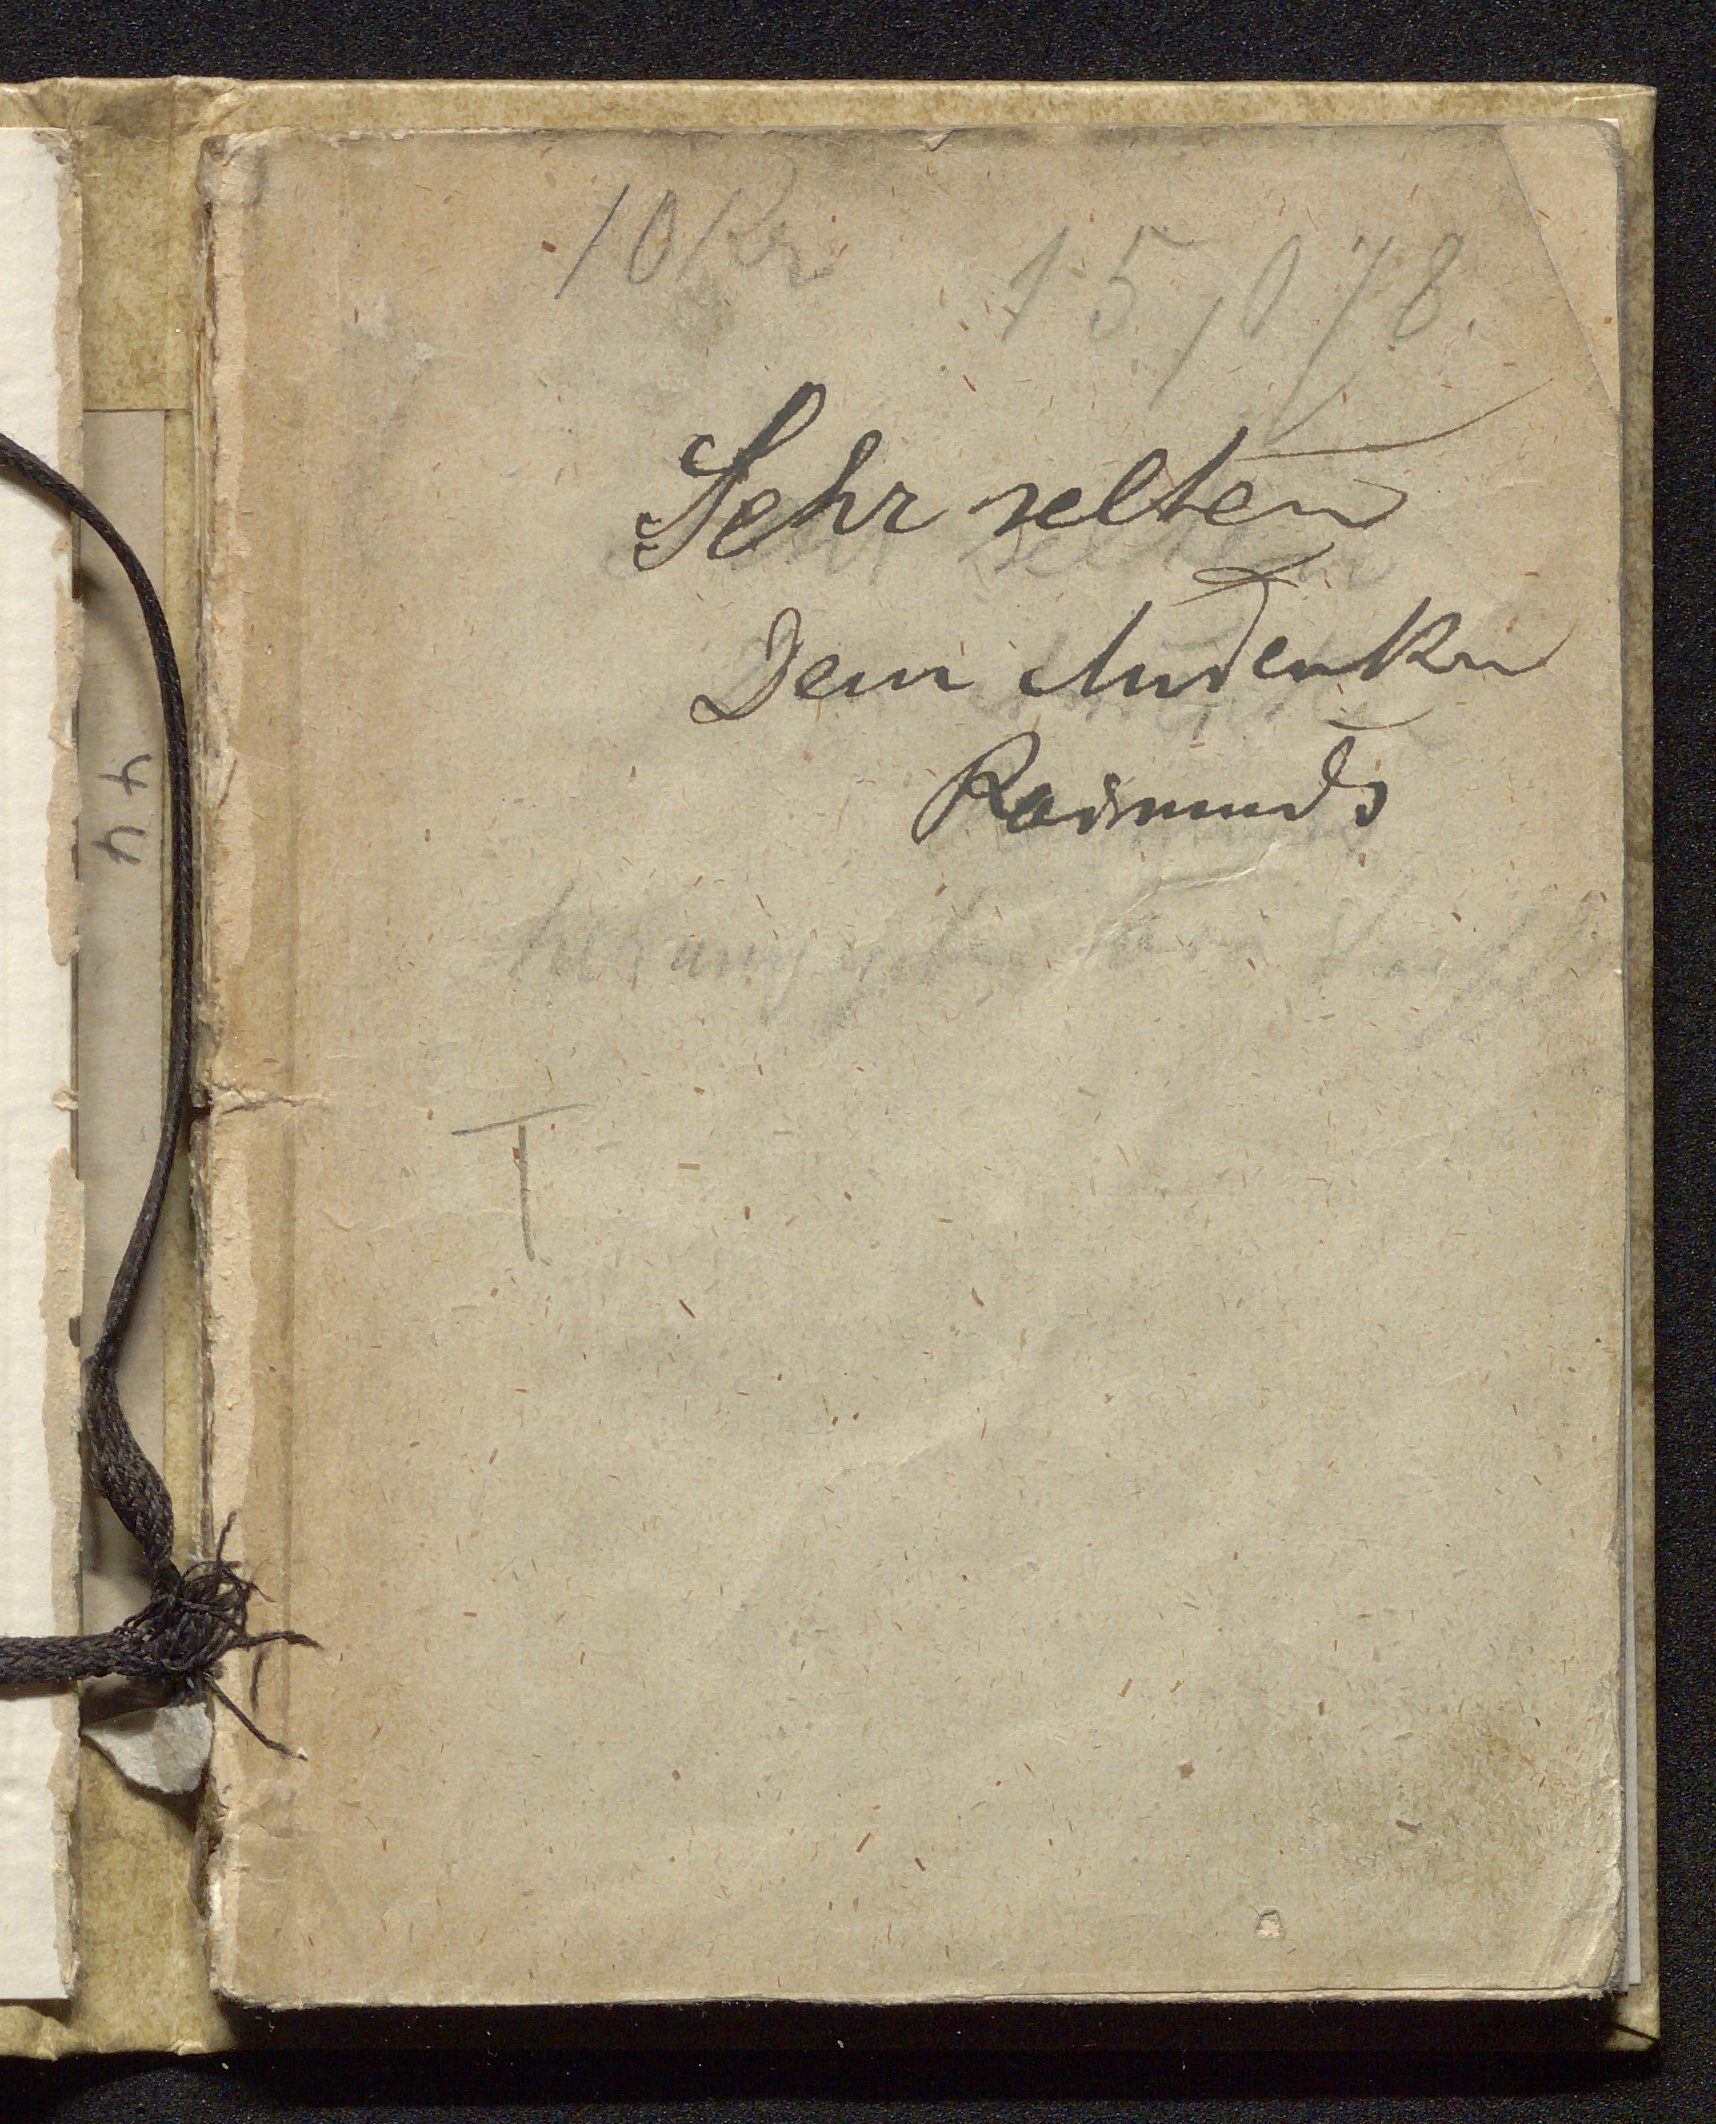 10 Kr
15,078.
Sehr selten
Dem Andenken
Raimunds
herausgegeben von
T
44